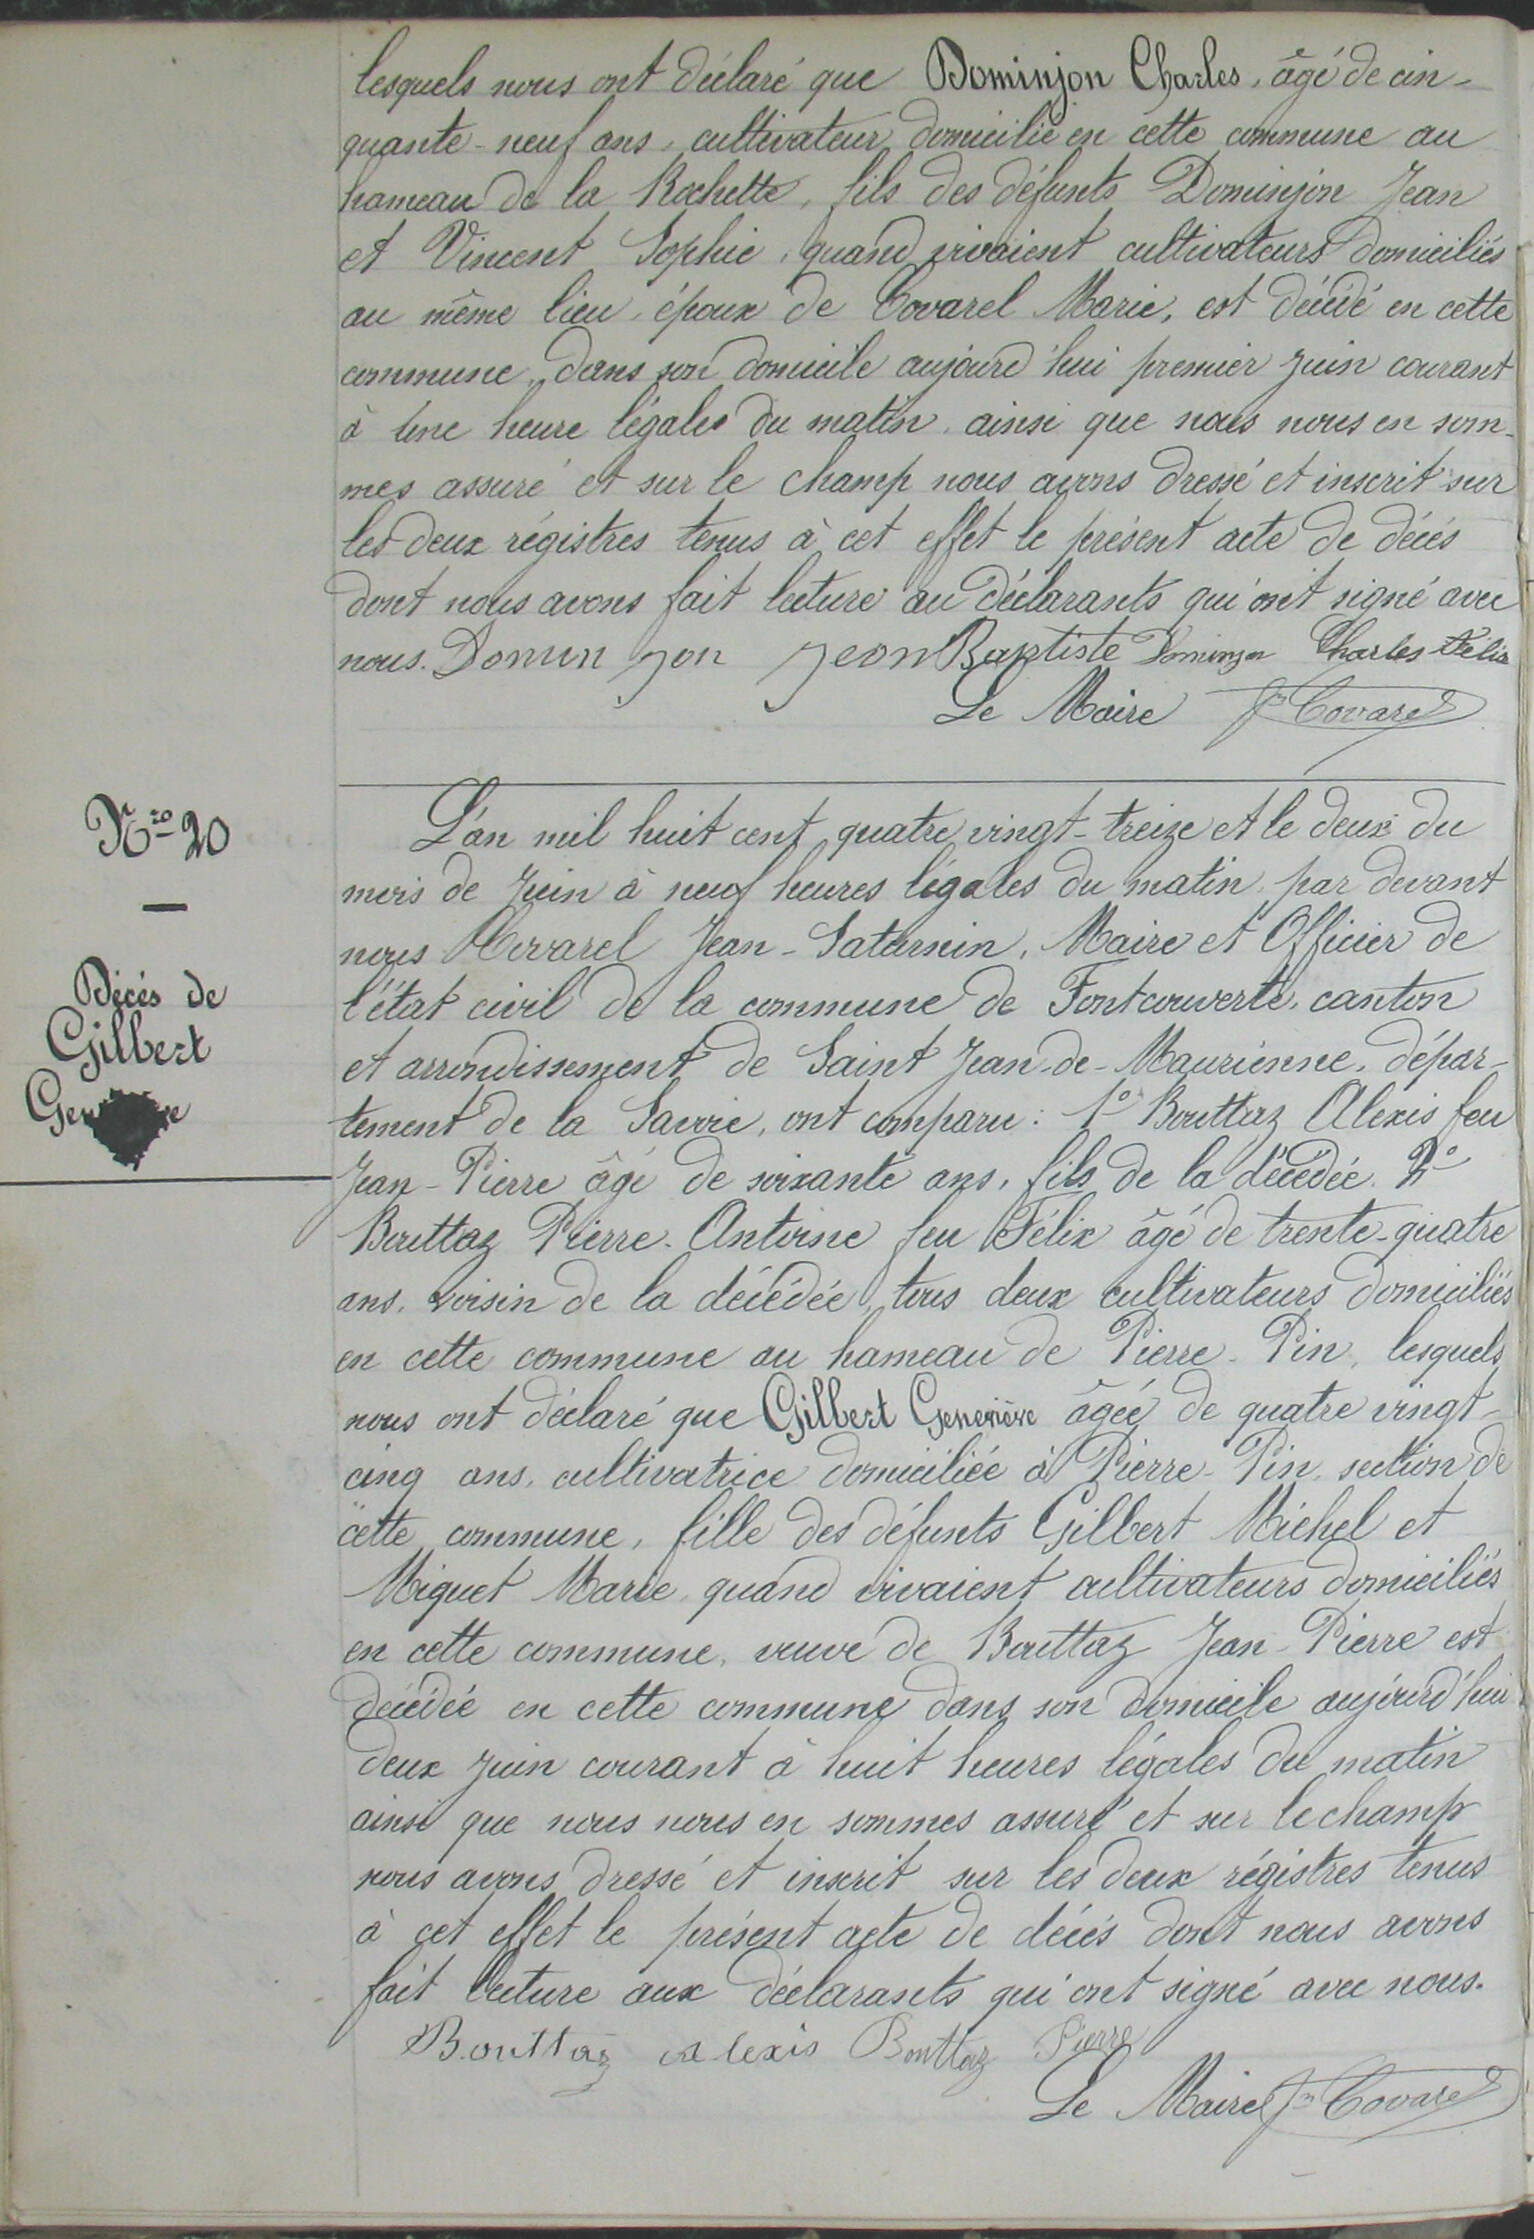 lesquels nous ont déclaré que Dominjon Charles, âgé de cin-
quante-neuf ans, cultivateur domicilié en cette commune au
hameau de la Rochette, fils des défunts Dominjon Jean
et Vincent Sophie, quand vivaient cultivateurs domiciliés
au même lieu, époux de Covarel Marie, est décédé en cette
commune, dans son domicile aujourd'hui premier juin courant
à une heure légales du matin, ainsi que nous nous en som-
mes assuré et sur le champ nous avons dressé et inscrit sur
les deux régistres tenus à cet effet le présent acte de décés
dont nous avons fait lecture au déclarants qui ont signé avec
nous. Domin jon jean Baptiste Dominjon Charles Félix
Le Maire Jn Covarel
Nro 20
Décés de
Gilbert
L'an mil huit cent quatre vingt-treize et le deux du
mois de Juin à neuf heures légales du matin, par devant
nous Covarel Jean-Saturnin, Maire et Officier de
l'état civil de la commune de Fontcouverte, canton
et arrondissement de Saint Jean-de-Maurienne, dépar-
tement de la Savoie, ont comparu : 1º Bouttaz Alexis feu
Jean-Pierre âgé de soixante ans, fils de la décédée. 2º
Bouttaz Pierre-Antoine feu Félix âgé de trente-quatre
ans, voisin de la décédée, tous deux cultivateurs domiciliés
en cette commune au hameau de Pierre-Pin, lesquels
nous ont déclaré que Gilbert Geneviève âgée de quatre vingt-
cinq ans, cultivatrice domiciliée à Pierre-Pin, section de
cette commune, fille des défunts Gilbert Michel et
Miquet Marie, quand vivaient cultivateurs domiciliés
en cette commune, veuve de Bouttaz Jean-Pierre est
décédée en cette commune dans son domicile aujourd'hui
deux juin courant à huit heures légales du matin
ainsi que nous nous en sommes assuré et sur le champ
nous avons dressé et inscrit sur les deux régistres tenus
à cet effet le présent acte de décés dont nous avons
fait lecture aux déclarants qui ont signé avec nous.
Bouttaz alexis Bouttaz Pierre
Le Maire Jn Covarel